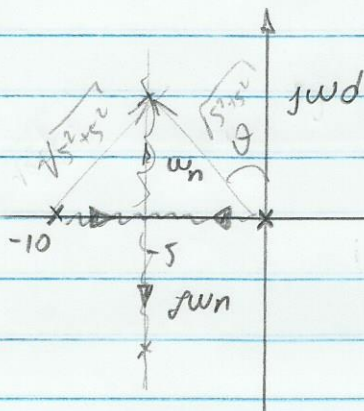 √5²+5²
√5²+5²
jWd
θ
Wn
-10
-5
ʃWn